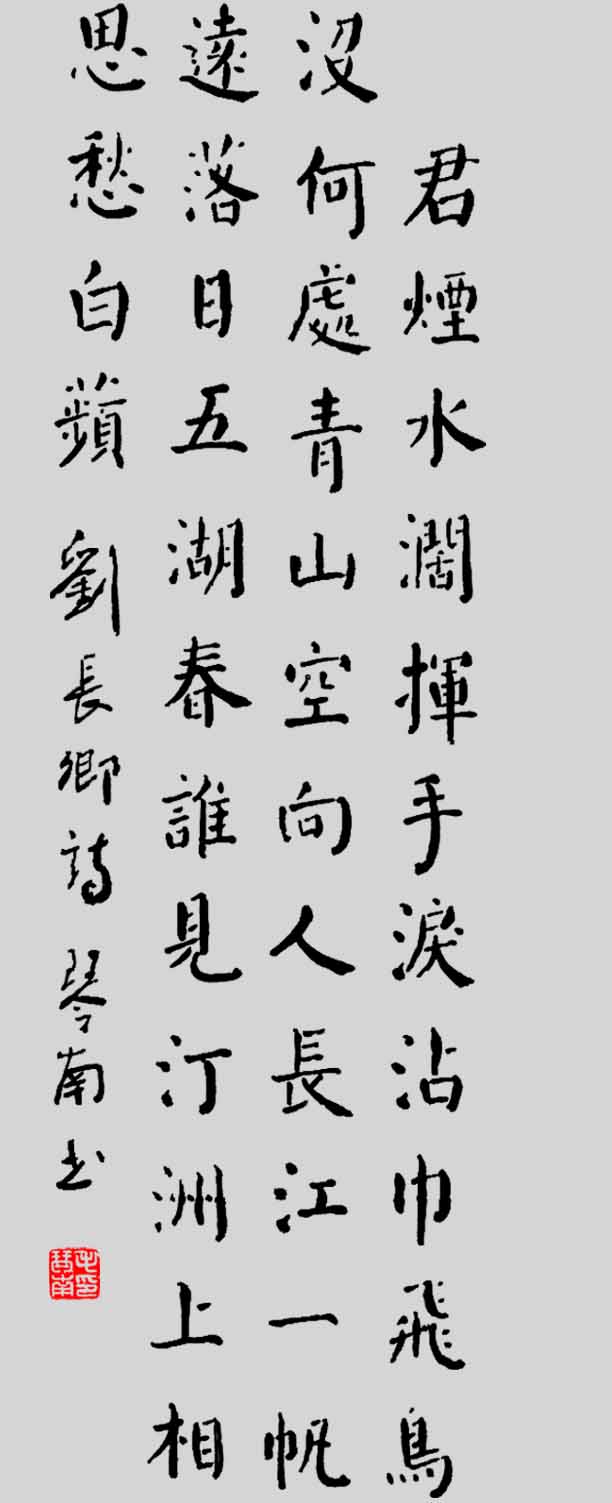 君煙水濶揮手淚沾巾飛鳥
没何處青山空向人長江一帆
遠落日五湖春誰見汀洲上相
思愁白蘋
劉長卿詩 琴南书